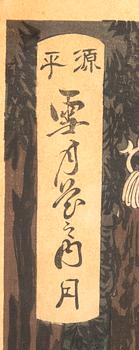 源平
雪月花之内 月